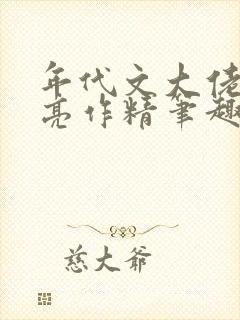 年代文大佬
亮作精笔趣
慈大爷